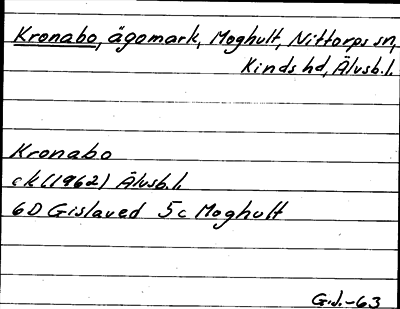 Kronabo, ägomark, Moghult, Nittorps sn,
Kinds hd, Älvsb.l.
Kronabo
ek (1962) Älvsb.l.
6D Gislaved 5c Moghult
G.J.-63